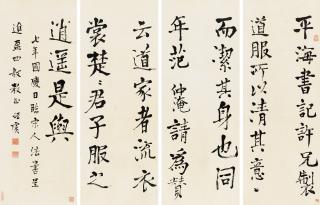 平海書記許兄製
道服所以清其意
而潔其身也同
年范仲淹請為贊
云道家者流衣
裳楚〻君子服之
逍遙是與
七年國慶日臨宋人法書呈
四叔教正